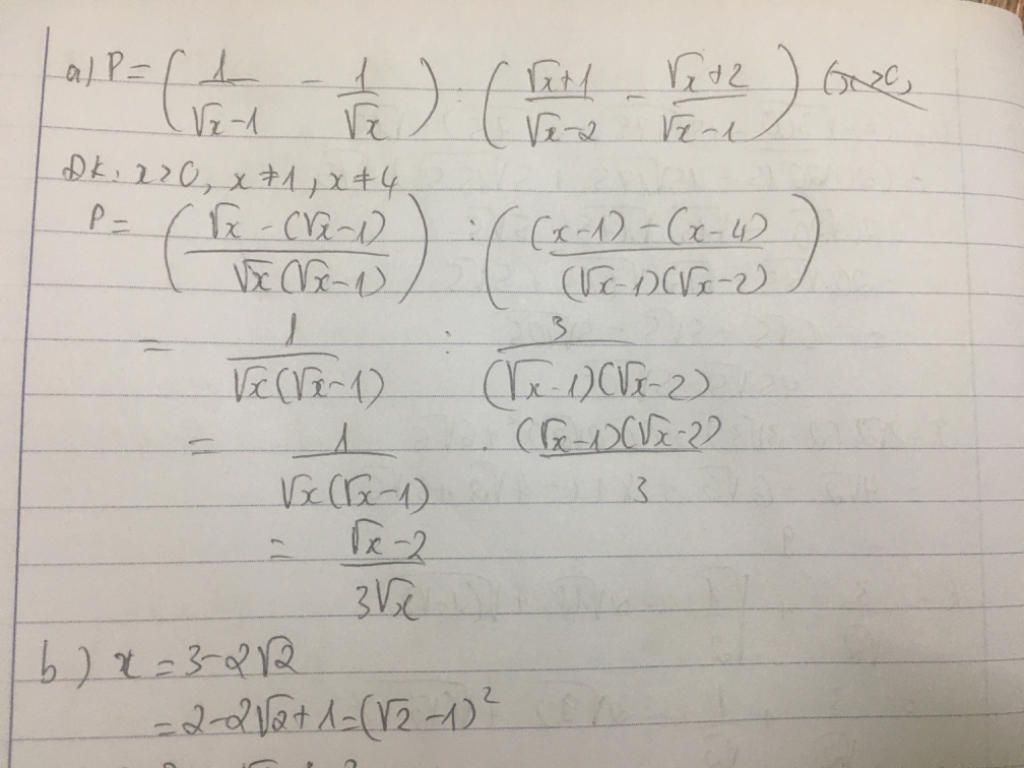 a) P = ( 1/(√x-1) - 1/√x ) : ( (√x+1)/(√x-2) - (√x+2)/(√x-1) ) (x>0,
ĐK: x>0, x≠1, x≠4
P = ( (√x-(√x-1))/(√x(√x-1)) ) : ( ((x-1)-(x-4))/((√x-1)(√x-2)) )
= 1/(√x(√x-1)) : 3/((√x-1)(√x-2))
= 1/(√x(√x-1)) . ((√x-1)(√x-2))/3
= (√x-2)/(3√x)
b) x = 3-2√2
= 2-2√2+1=(√2-1)²